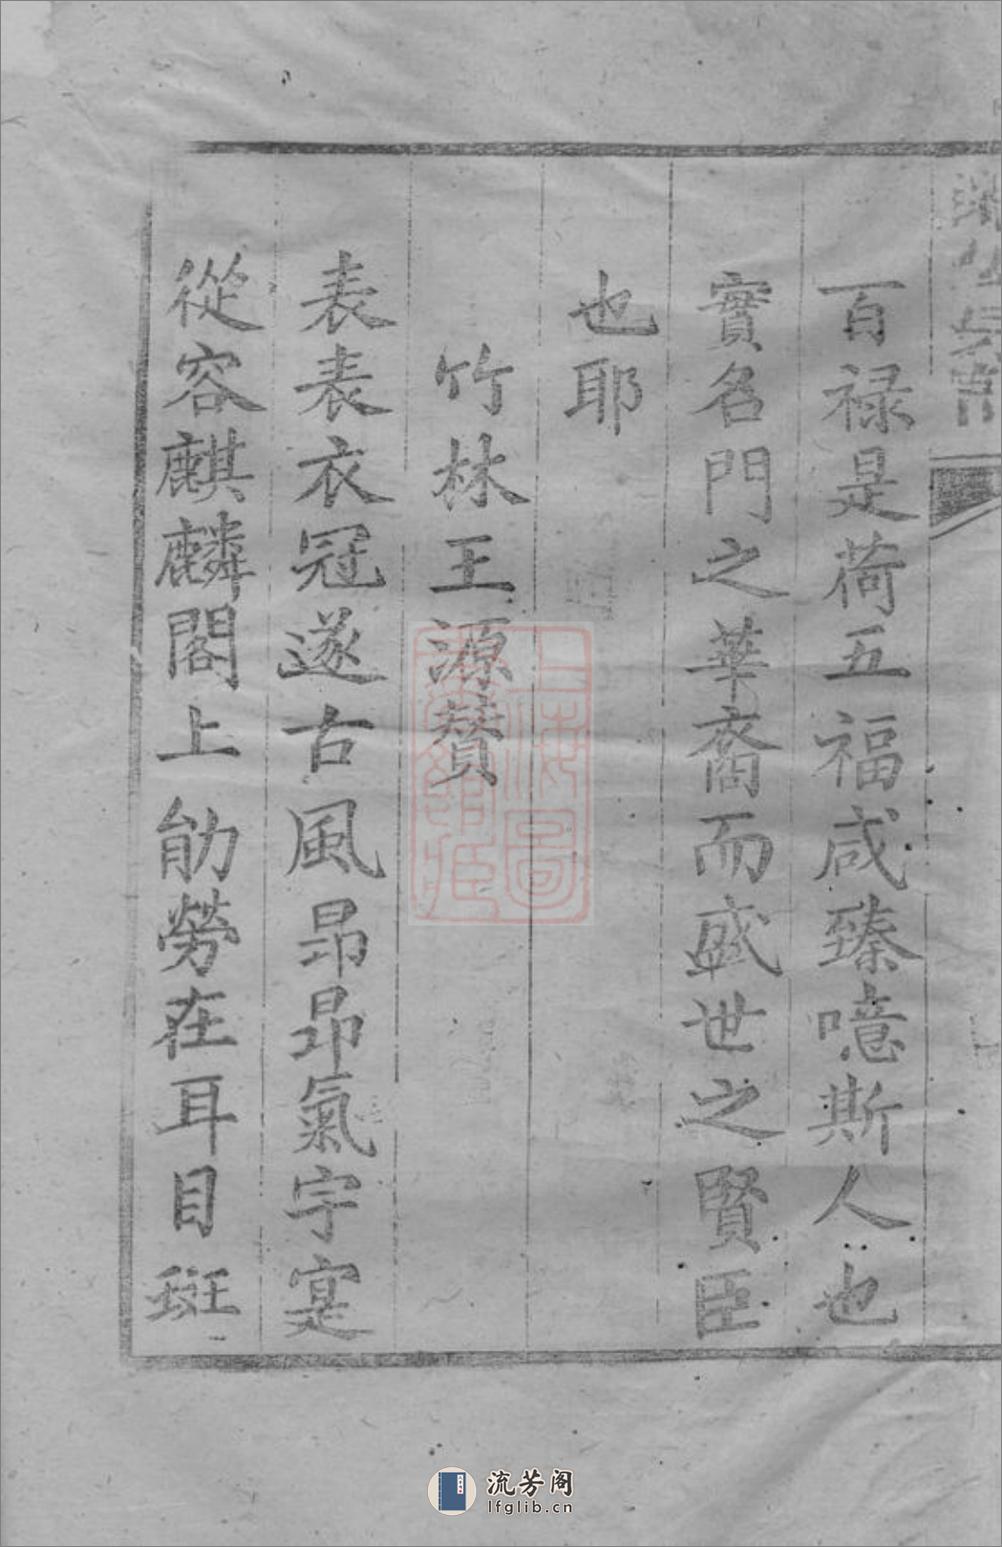 百禄是荷五福咸臻噫斯人也
實名門之華裔而盛世之賢臣
也耶
竹林王源賛
表表衣冠遂古風昂昂氣宇寔
從容麒麟閣上勛勞在耳目斑
上海圖書館藏
流芳阁
lfglib.cn